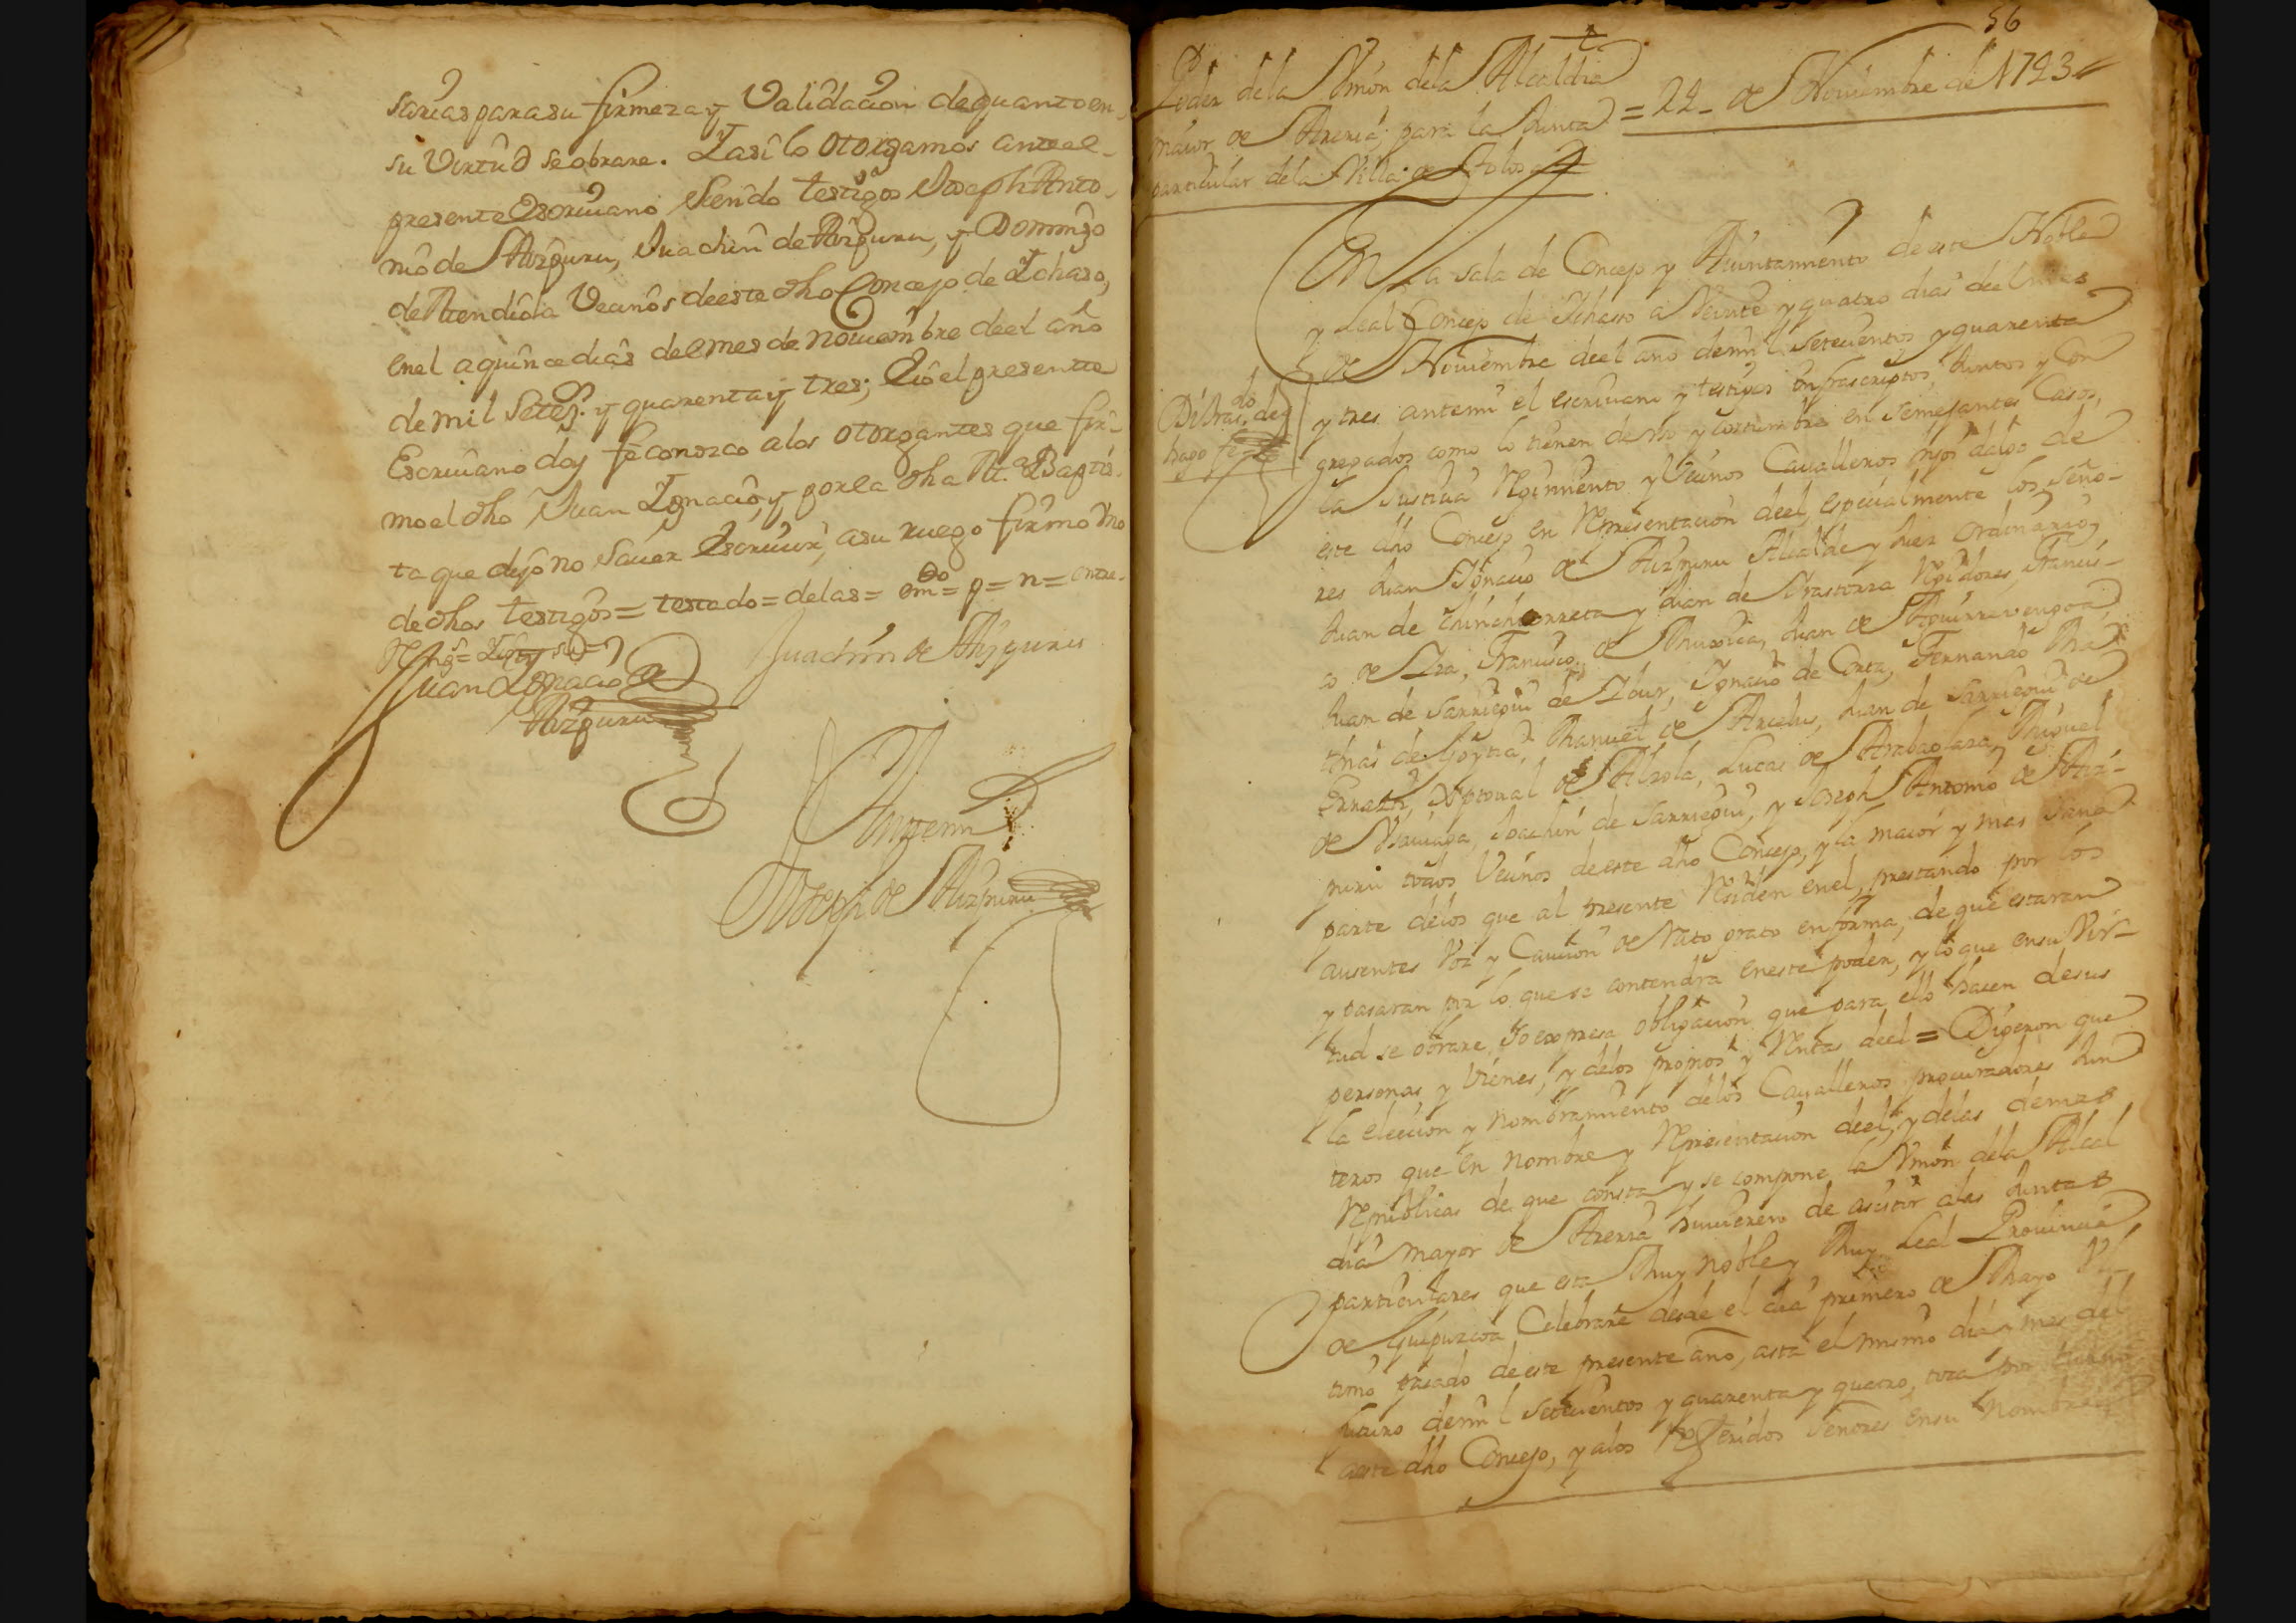 sarias para su firmeza y Validacion de quanto en
su Virtud se obrare. Y asi lo otorgamos ante el
presente Escriuano siendo testigos Joseph Anto-
nio de Aizpuru, Juachin de Aizpuru, y Domingo
de Mendiola Vecinos de este dho Concejo de Ichaso,
en el a quince dias del mes de nouiembre de el año
de mil Setez.s y quarenta y tres; E io el presente
Escriuano doy fe conozco a los otorgantes que fir-
mo el dho Juan Ignacio, y por la dha M.a Baptis-
ta que dijo no Sauer Escriuir, a su ruego firmo vno
de dhos testigos = testado = de las = em.do = p = n = entre-
Juan Ignacio de
Aizpuru
Juachin de Aizpuru
Ante mi
Joseph de Aizpuru
56
Poder de la Vnion de la Alcaldia
maior de Areria, para la Junta = 24 de Nouiembre de 1743
particular de la Villa de Tolosa
En la sala de Concejo y Aiuntamiento de este Noble
y Leal Concejo de Ichasso a Veinte y quatro dias de el mes
de Nouiembre de el año de mil Setecientos y quarenta
y tres ante mi el escriuano y testigos infrascriptos, Juntos y Con
gregados como lo tienen de vso y costumbre en Semejantes Casos,
la Justicia Regimiento y Vecinos Caualleros hijos dalgo de
este dho Concejo en Representacion de el, especialmente los Seño-
res Juan Ignacio de Aizpuru Alcalde y Juez Ordinario,
Juan de Chinchurreta y Juan de Vrastorza Regidores, Francis-
co de Lza, Francisco de Muxica, Juan de Aguirresengoa,
Juan de Sarriegui de Ydur, Ygnacio de Orta, Fernando Ma-
thias de Goytia, Manuel de Arcelus, Juan de Sarriegui de
de Alzola, Lucas de Arabaolaza, Miguel
de Vsauiaga, Joachin de Sarriegui, y Joseph Antonio de Aiz-
puru todos Vecinos de este dho Concejo, y la maior y mas sana
parte de los que al presente Residen en el, prestando por los
ausentes Voz y Caucion de Rato grato en forma, de que estaran
y pasaran por lo que se contendra en este poder, y lo que en su Vir-
tud se obrare, so expresa obligacion que para ello hacen de sus
personas y Vienes, y de los propios y Rentas de el = Digeron que
la eleccion y nombramiento de los Caualleros procuradores Jun
teros que en nombre y Representacion de el, y de las demas
Republicas de que consta y se compone la Vnion de la Alcal
dia mayor de Areria huuieren de asistir a las Juntas
particulares que esta Muy noble y Muy Leal Prouincia
de Guipuzcoa Celebrare desde el dia primero de Mayo Vl-
timo pasado de este presente año, asta el mismo dia y mes del
futuro de mil Setecientos y quarenta y quatro, toca por turno
a este dho Concejo, y a los Referidos Señores en su nombre
hago fe